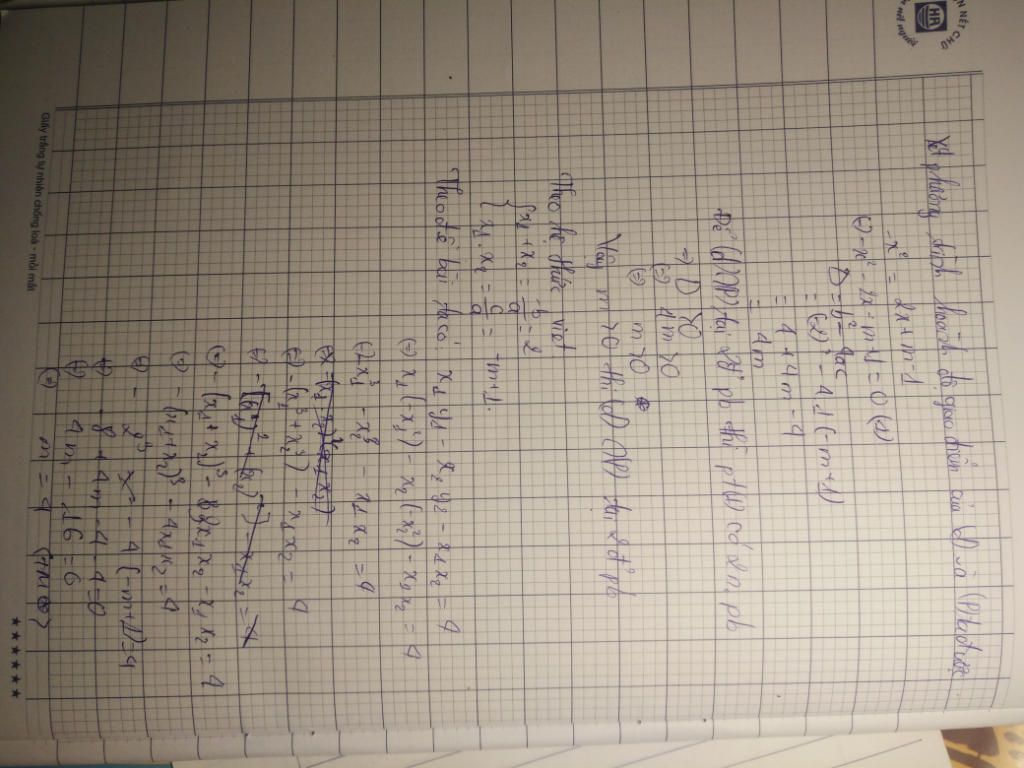 N NÉT CHỮ
HR
Xét phương trình hoành độ giao điểm của (d) và (P) ta có:
-x² = 2x + m - 1
(=) -x² - 2x - m + 1 = 0 (1)
Δ = b² - 4ac
= (-2)² - 4.1(-m+1)
= 4 + 4m - 4
= 4m
Để (d) (P) tại 2 đ' pb thì pt(1) có 2 n₀ pb
=> Δ > 0
(=) 4m > 0
(=) m > 0
Vậy m > 0 thì (d) (P) tại 2 đ' pb
Theo hệ thức viet
{ x₁ + x₂ = -b/a = -2
{ x₁ . x₂ = c/a = -m+1.
Theo đề bài ta có: x₁y₁ - x₂y₂ - x₁x₂ = 4
(=) x₁(-x₁²) - x₂(x₂²) - x₁x₂ = 4
(=) -x₁³ - x₂³ - x₁x₂ = 4
(=) -(x₁³ + x₂³) - x₁x₂ = 4
(=) -(x₁ + x₂)³ - 3x₁x₂ - x₁x₂ = 4
(=) -(x₁ + x₂)³ - 4x₁x₂ = 4
(=) - 2³ - 4(-m+1) = 4
(=) -8 + 4m - 4 - 4 = 0
(=) 4m - 16 = 0
(=) m = 4 (TM)
Giấy trắng tự nhiên chống loá - mỏi mắt
★★★★★★